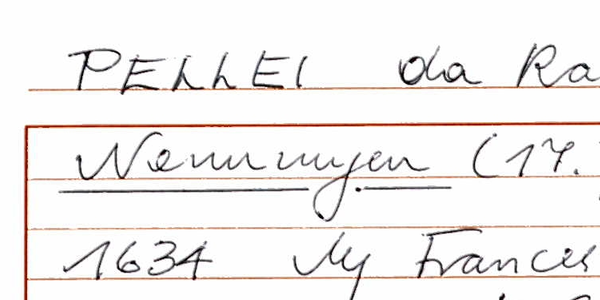 PELLEI da Ra
Nenningen (17.
1634 My Frances